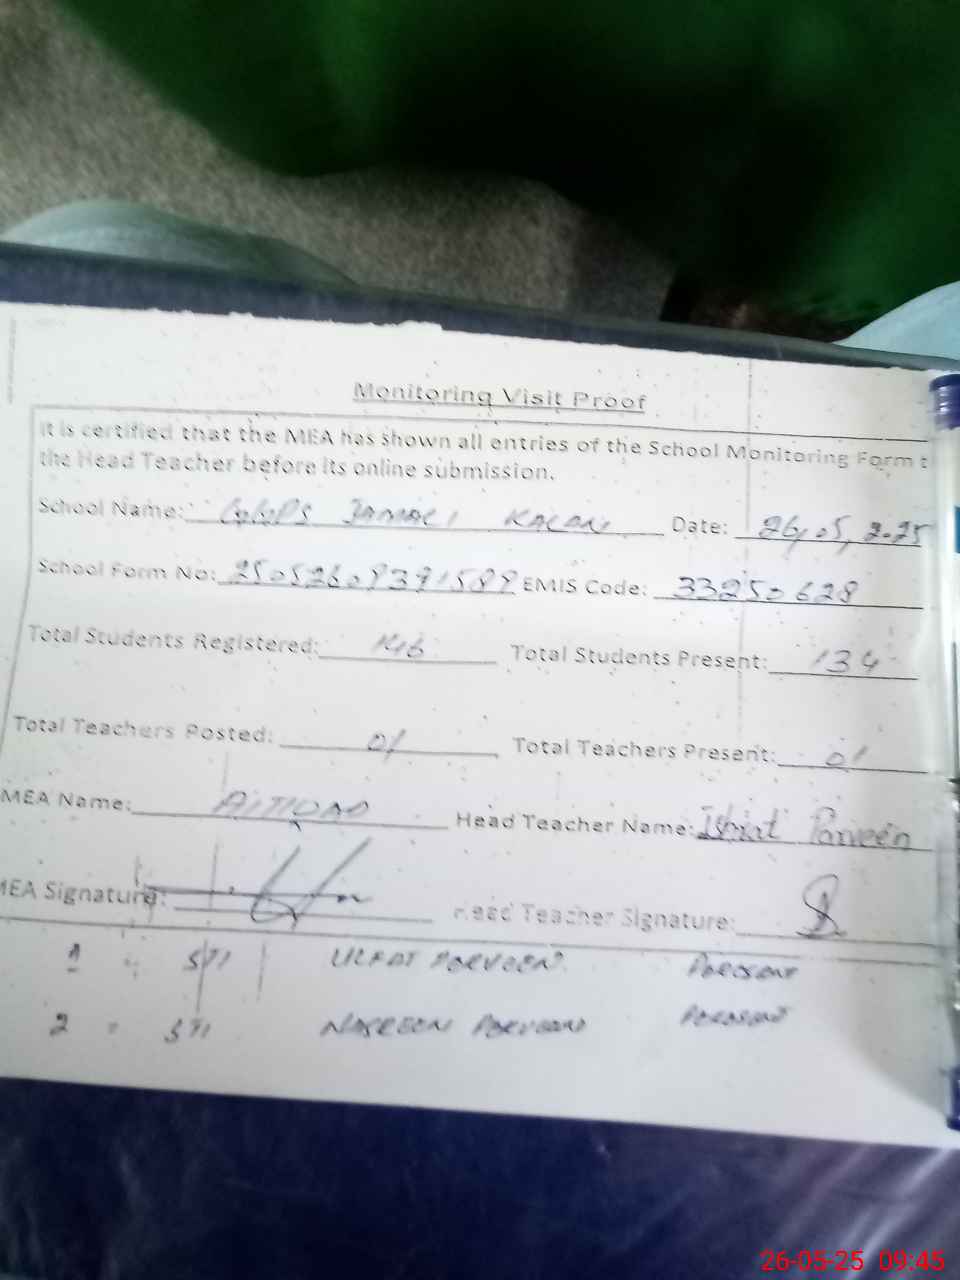 Monitoring Visit Proof
It is certified that the MEA has shown all entries of the School Monitoring Form t
the Head Teacher before its online submission.
School Name: GGPS KALAN Date: 26,05,2025
School Form No: EMIS Code: 33250628
Total Students Registered: 146 Total Students Present: 134
Total Teachers Posted: 01 Total Teachers Present: 01
MEA Name: Head Teacher Name: Ishrat Parveen
MEA Signature: Head Teacher Signature:
1 STI ULFAT PARVEEN PRESENT
2 STI NASREEN PARVEEN PRESENT
26-05-25 09:45